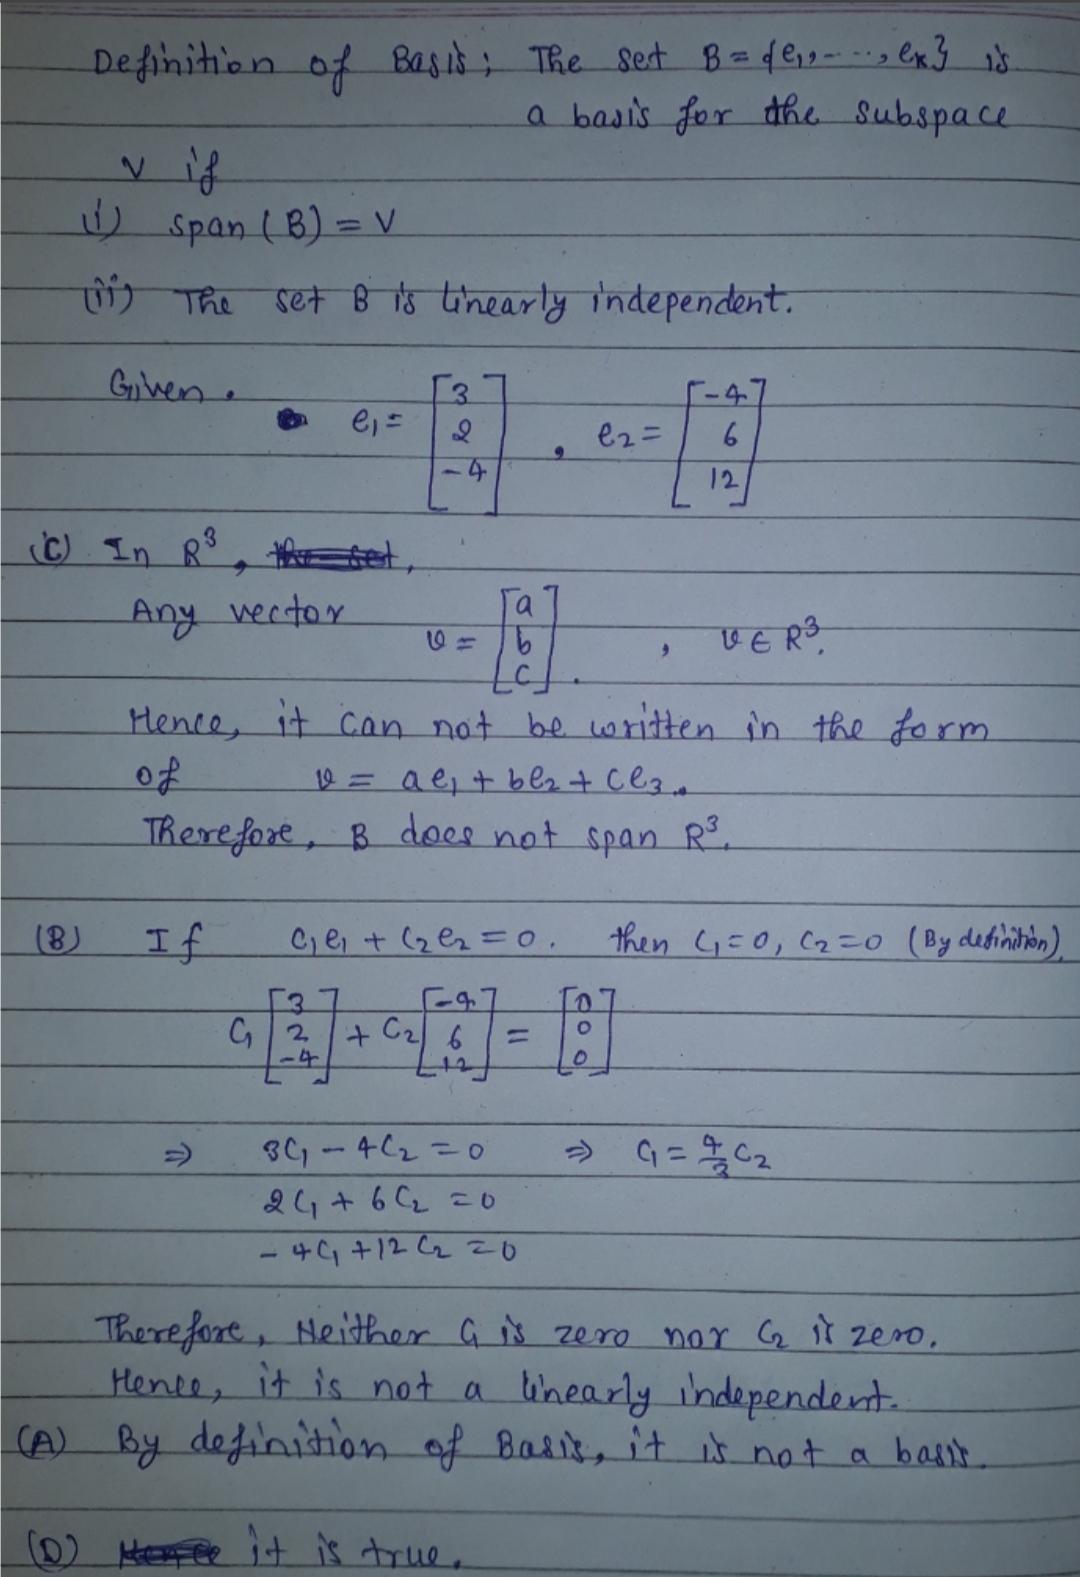 Definition of Basis; The set B = {e₁, ---, eₖ} is
a basis for the subspace
V if
(i) span (B) = V
(ii) The set B is linearly independent.
Given. e₁ = [3 2 -4], e₂ = [-4 6 12]
(C) In R³,
Any vector v = [a b c]. , v ∈ R³.
Hence, it can not be written in the form
of v = ae₁ + be₂ + ce₃.
Therefore, B does not span R³.
(B) If c₁e₁ + c₂e₂ = 0. then c₁=0, c₂=0 (By definition).
c₁ [3 2 -4] + c₂ [-4 6 12] = [0 0 0]
⇒ 3c₁ - 4c₂ = 0 ⇒ c₁ = 4/3 c₂
2c₁ + 6c₂ = 0
-4c₁ + 12c₂ = 0
Therefore, Neither c₁ is zero nor c₂ is zero.
Hence, it is not a linearly independent.
(A) By definition of Basis, it is not a basis.
(D) it is true.